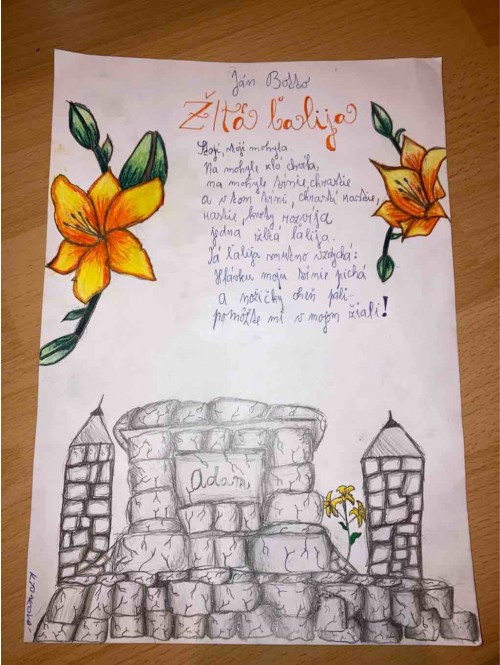 Ján Botto
Žltá ľalija
Stojí, stojí mohyla
Na mohyle zlá chvíľa,
na mohyle tŕnie, chrastie
a v tom tŕní, chrastí rastie,
rastie, kvety rozvíja
jedna žltá ľalija.
Tá ľalija smutno vzdychá:
Hlávku moju tŕnie pichá
a nožičky oheň páli -
pomôžte mi v mojom žiali!
Adam